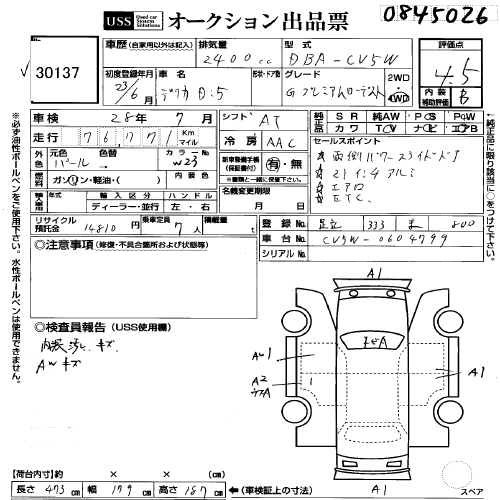 USS Used car System Solutions オークション出品票 0845026
30137
車歴 (自家用以外は記入) 排気量 型式
2400cc DBA-CV5W
初度登録年月 車名 形状・ドア数 グレード 2WD 4WD
23/6月 デリカ D:5
評価点 4.5
内装補助評価 B
車検 28年 7月 シフト AT
走行 76771 Km マイル 冷房 AAC
外装色 元色 色替 カラーNo
パール W23
燃料 ガソリン・軽油・( )
新車整備手帳(保証書) 有・無
※書類と一緒に提出して下さい。
輸入車 年式 輸入区分 ハンドル
ディーラー・並行 左・右
名義変更期限 月 日
純正品 SR 純AW PS PW
カワ TV ナビ エアB
セールスポイント
両側パワースライドドア
21インチアルミ
エアロ
ETC
リサイクル預託金 14810円 乗車定員 7人 積載量 t
登録 足立 333 800
車台 CV5W-0604799
シリアルNo.
◎注意事項 (修復・不具合箇所および状態等)
◎検査員報告 (USS使用欄)
内装汚れ キズ
AWキズ
A1
A1
A2
A1
A1
スペア
【荷台内寸】約 × × cm
長さ 473cm 幅 179cm 高さ 187cm (車検証上の寸法)
※必ず油性ボールペンをご使用下さい。水性ボールペンは使用できません。
純正品に限り該当に○をつけて下さい。